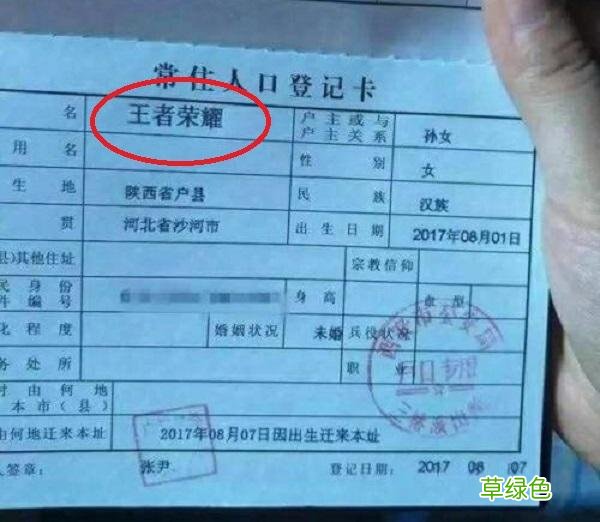 常住人口登记卡
名 王者荣耀 户主或与户主关系 孙女
用名 性别 女
生地 陕西省户县 民族 汉族
贯 河北省沙河市 出生日期 2017年08月01日
县)其他住址 宗教信仰
民身份件编号 身高 血型
化程度 婚姻状况 未婚 兵役状况
务处所 职业
时由何地本市(县)
何地迁来本址 2017年08月07日因出生迁来本址
人签章: 张尹 登记日期: 2017 08 07
草绿色